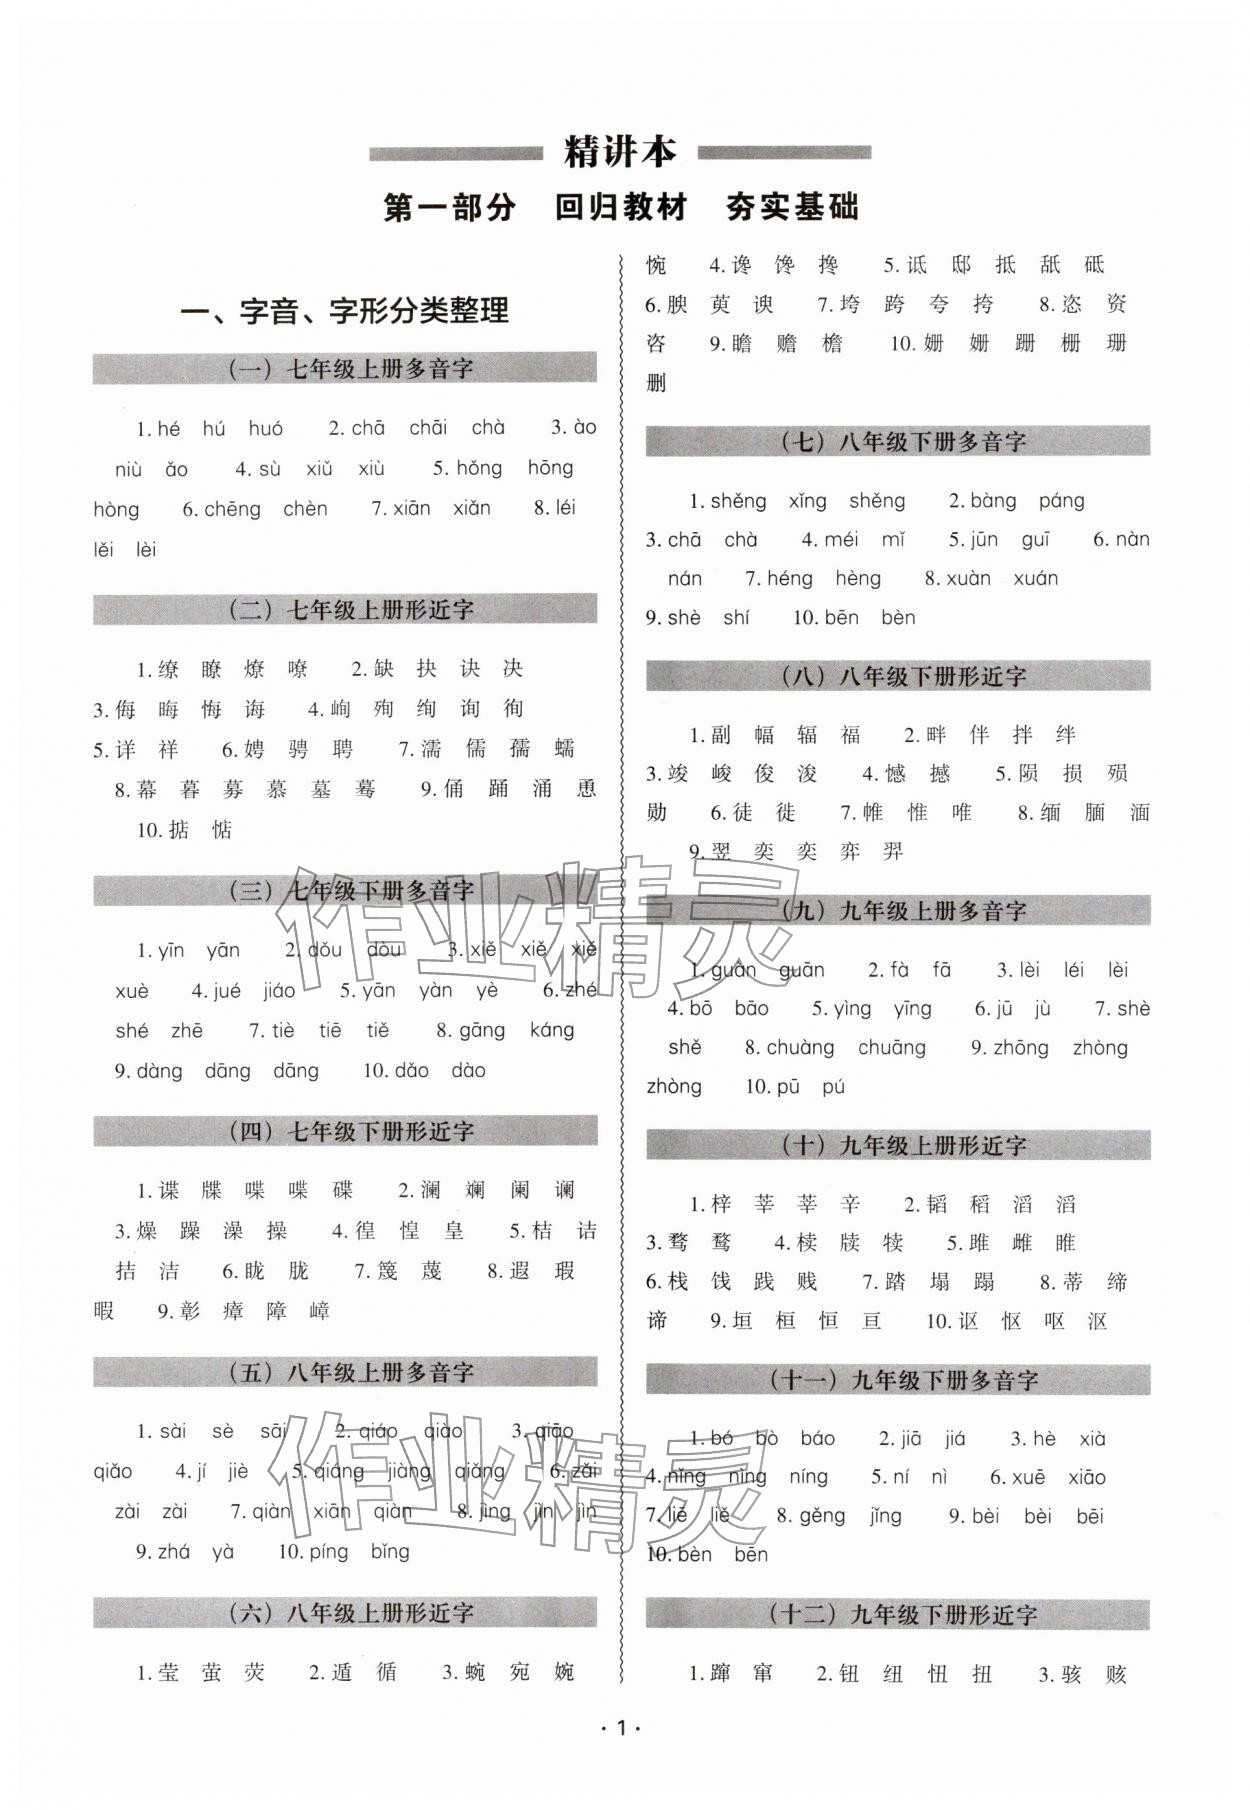 精讲本
第一部分 回归教材 夯实基础
一、字音、字形分类整理
（一）七年级上册多音字
1. hé hú huó 2. chā chāi chà 3. ào
niù ǎo 4. sù xiǔ xiù 5. hǒng hōng
hòng 6. chēng chèn 7. xiān xiǎn 8. léi
lěi lèi
（二）七年级上册形近字
1. 缭 瞭 燎 嘹 2. 缺 抉 诀 决
3. 侮 晦 悔 诲 4. 峋 殉 绚 询 徇
5. 详 祥 6. 娉 骋 聘 7. 濡 儒 孺 蠕
8. 幕 暮 募 慕 墓 蓦 9. 俑 踊 涌 恿
10. 掂 惦
（三）七年级下册多音字
1. yīn yān 2. dǒu dòu 3. xiě xiě xiě
xuè 4. jué jiáo 5. yān yàn yè 6. zhé
shé zhē 7. tiè tiē tiě 8. gāng káng
9. dàng dāng dāng 10. dǎo dào
（四）七年级下册形近字
1. 谍 牒 喋 喋 碟 2. 澜 斓 阑 谰
3. 燥 躁 澡 操 4. 徨 惶 皇 5. 桔 诘
拮 洁 6. 眬 胧 7. 篾 蔑 8. 遐 瑕
暇 9. 彰 瘴 障 嶂
（五）八年级上册多音字
1. sài sè sāi 2. qiáo qiào 3. qiāo
qiǎo 4. jí jiè 5. qiáng jiàng qiǎng 6. zǎi
zài zài 7. qiàn xiān qiàn 8. jìng jìn jìn
9. zhá yà 10. píng bǐng
（六）八年级上册形近字
1. 莹 萤 荧 2. 遁 循 3. 蜿 宛 婉
惋 4. 谗 馋 搀 5. 诋 邸 抵 舐 砥
6. 腴 萸 谀 7. 垮 跨 夸 挎 8. 恣 资
咨 9. 瞻 赡 檐 10. 姗 姗 跚 栅 珊
删
（七）八年级下册多音字
1. shěng xǐng shěng 2. bàng páng
3. chā chà 4. méi mǐ 5. jūn guī 6. nàn
nán 7. héng hèng 8. xuàn xuán
9. shè shí 10. bēn bèn
（八）八年级下册形近字
1. 副 幅 辐 福 2. 畔 伴 拌 绊
3. 竣 峻 俊 浚 4. 憾 撼 5. 陨 损 殒
勋 6. 徒 徙 7. 帷 惟 唯 8. 缅 腼 湎
9. 翌 奕 奕 弈 羿
（九）九年级上册多音字
1. guàn guān 2. fà fā 3. lèi léi lèi
4. bō bāo 5. yìng yīng 6. jū jù 7. shè
shě 8. chuàng chuāng 9. zhōng zhòng
zhòng 10. pū pú
（十）九年级上册形近字
1. 梓 莘 莘 辛 2. 韬 稻 滔 滔
3. 骛 鹜 4. 椟 牍 犊 5. 雎 雌 睢
6. 栈 饯 践 贱 7. 踏 塌 蹋 8. 蒂 缔
谛 9. 垣 桓 恒 亘 10. 讴 怄 呕 沤
（十一）九年级下册多音字
1. bó bò báo 2. jiā jiá 3. hè xià
4. nǐng nìng níng 5. ní nì 6. xuē xiāo
7. liē liě 8. gěng jǐng 9. bèi bèi bēi
10. bèn bēn
（十二）九年级下册形近字
1. 蹿 窜 2. 钮 纽 忸 扭 3. 骇 赅
· 1 ·
作业精灵
作业精灵